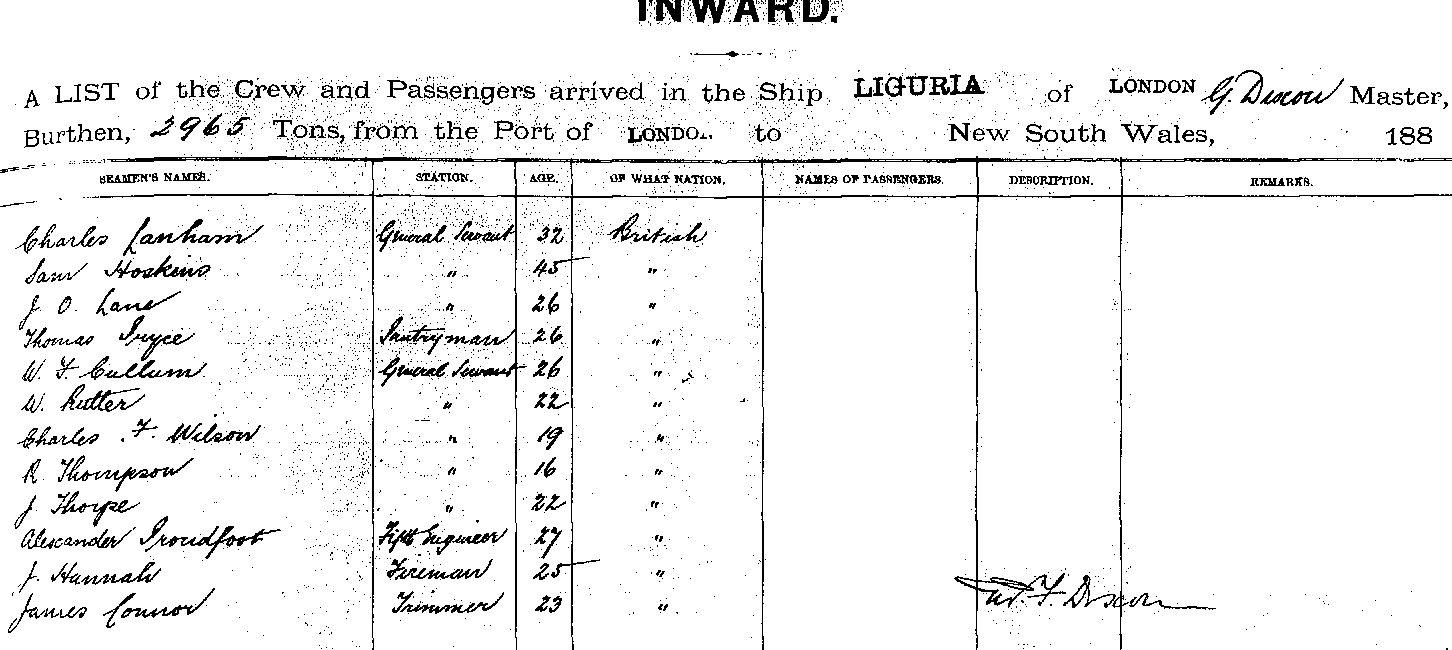 INWARD.
A LIST of the Crew and Passengers arrived in the Ship LIGURIA of LONDON G. Dixon Master,
Burthen, 2965 Tons, from the Port of LONDO to New South Wales, 188
SEAMEN'S NAMES. STATION. AGE. OF WHAT NATION. NAMES OF PASSENGERS. DESCRIPTION. REMARKS.
Charles Lanham General Servant 32 British
Sam Hoskins " 45 "
J. O. Lane " 26 "
Thomas Pryce Pantryman 26 "
W. F. Cullum General Servant 26 "
W. Rutter " 22 "
Charles F. Wilson " 19 "
R Thompson " 16 "
J Thorpe " 22 "
Alexander Proudfoot Fifth Engineer 27 "
J. Hannah Fireman 25 "
James Connor Trimmer 23 "
F. Dixon